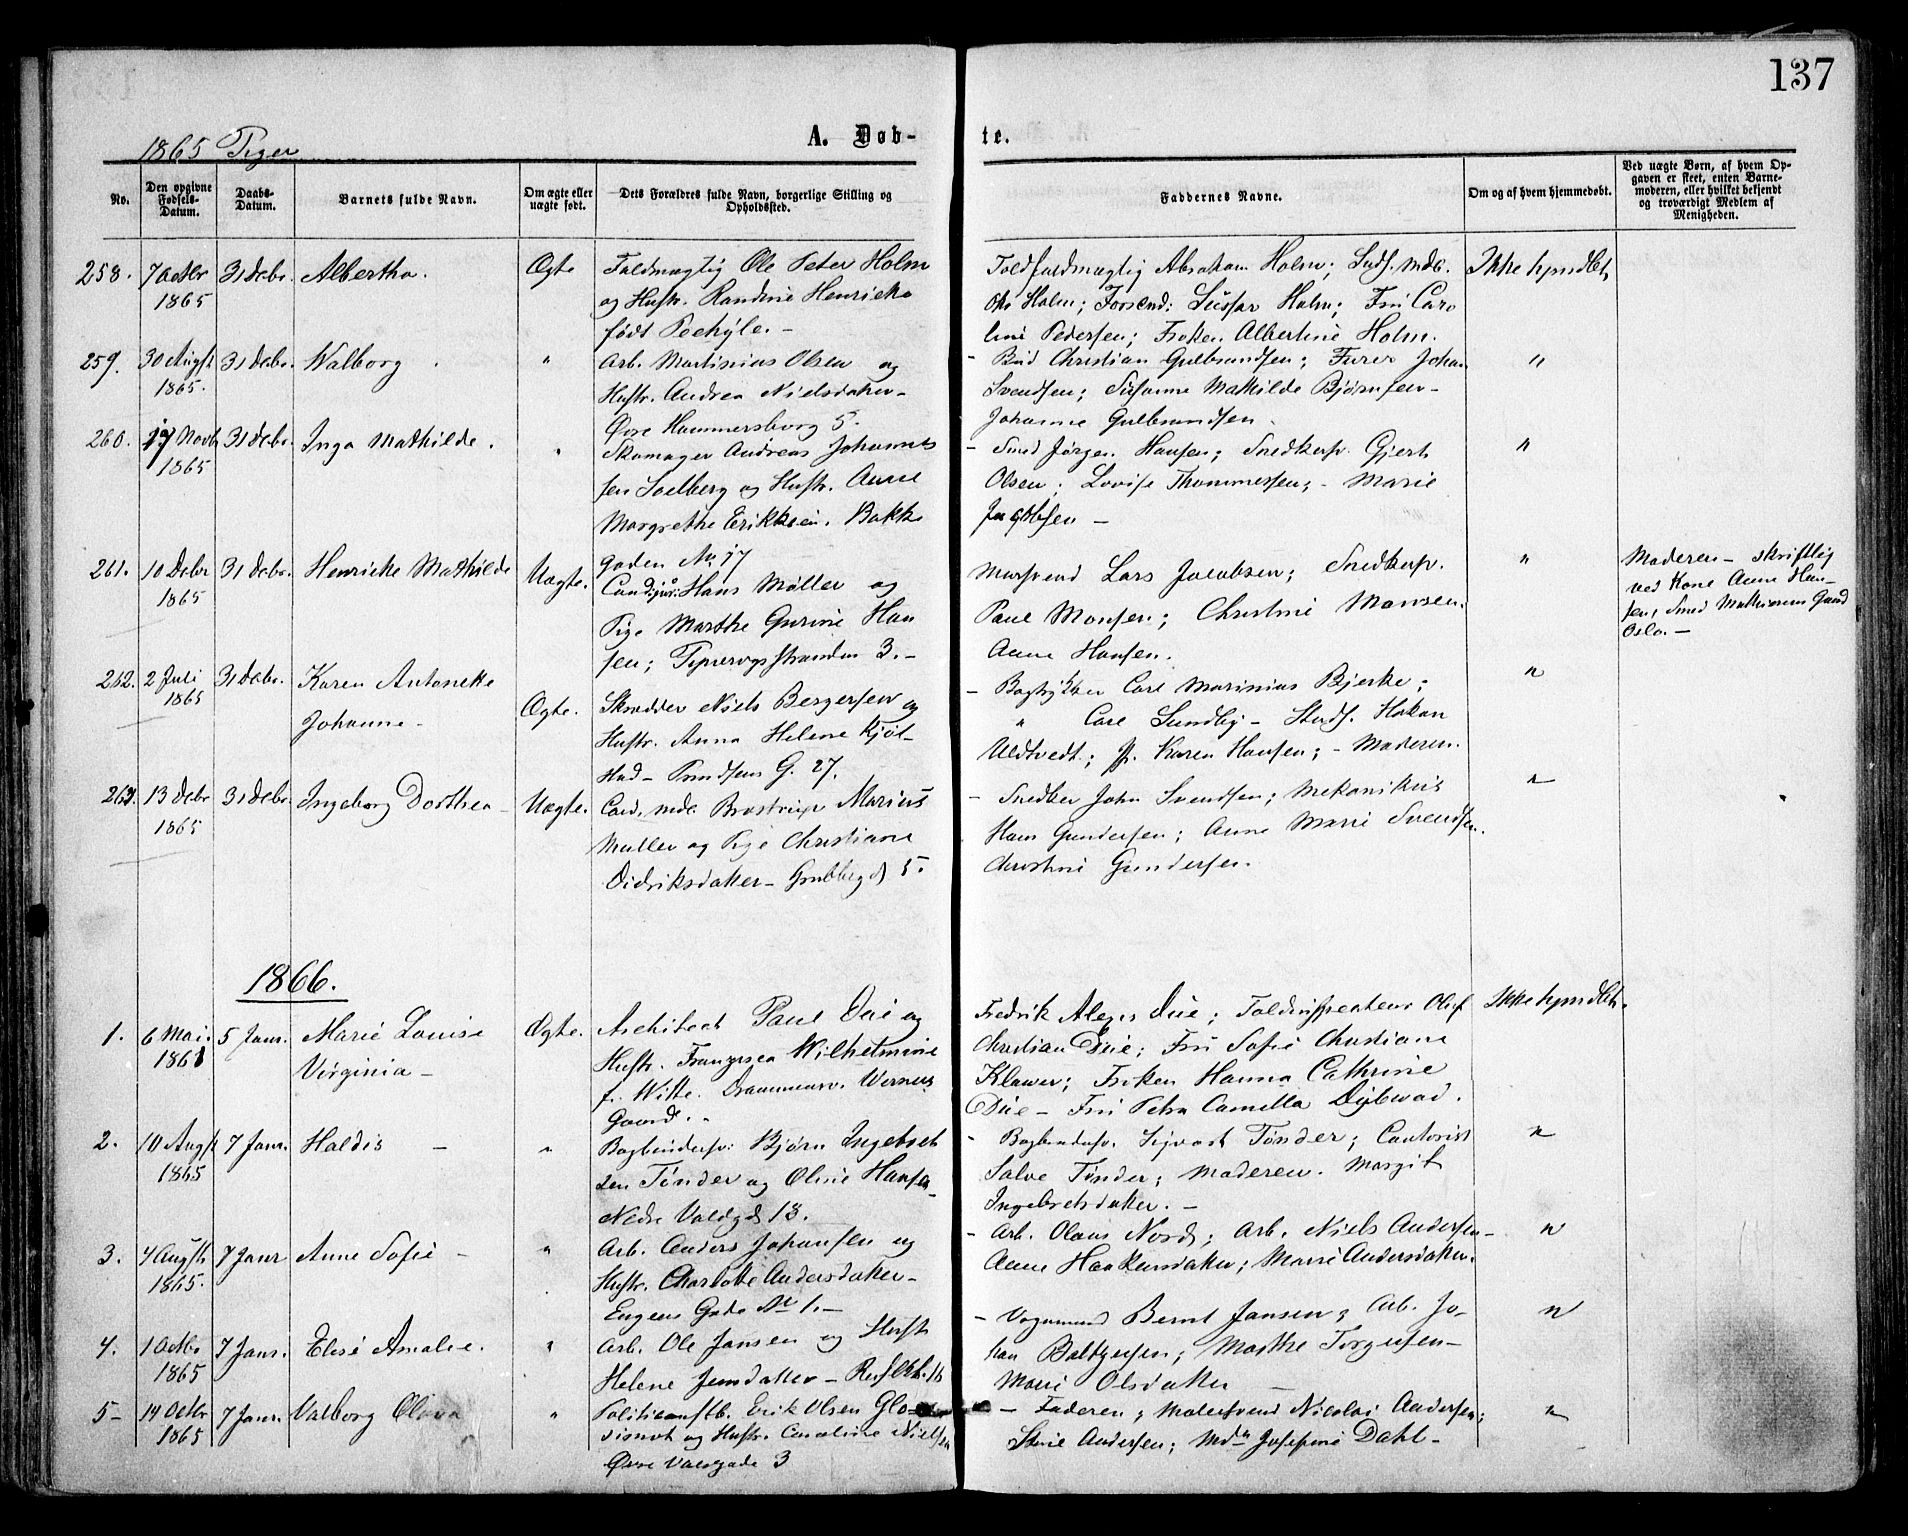 137
1865 Piger
A. Døb-
te.
No.
Den opgivne Fødsels-Datum.
Daabs-Datum.
Barnets fulde Navn.
Om ægte eller uægte født.
Dets Forældres fulde Navn, borgerlige Stilling og Opholdssted.
Faddernes Navne.
Om og af hvem hjemmedøbt.
Ved uægte Børn, af hvem Opgaven er skeet, enten Barnemoderen, eller hvilket bekjendt og troværdigt Medlem af Menigheden.
258. 7 Octbr 1865 31 Decbr. Albertha. Ægte
Fuldmægtig Ole Peter Holm
og Hustr. Randine Henrieke
født
Toldfuldmægtig Abraham Holm; Ikke hjmdbt,
Holm; Holm; Fru Caro
line Pedersen; Frøken Albertine Holm.
259. 30 Augst 1865. 31 Decbr. Valborg "
Arb. Martinius Olsen og
Hustr. Andrea Nielsdatter-
Øvre Hammersborg 5.
- Bud Christian Gulbrandsen; Furer Johan "
Svendsen; Susanne Mathilde Bjørnsen-
Johanne Gulbrandsen.
260. 17 Novb 1865 31 Decbr. Inga Mathilde. "
Skomager Andreas Johannes
sen Solberg og Hustr. Anne
Margrethe Eriksen. Bakke
gaden No 17
- Smed Jørgen Hansen; Snedkersv. Gjert "
Olsen; Lovise Thommessen; - Marie
Jacobsen -
261. 10 Decbr 1865 31 Decbr. Henrieke Mathilde Uægte.
Cand. jur. Hans Møller og
Pige Marthe Gurine Han
sen; 3.-
Mursvend Lars Jacobsen; Snedkersv. "
Paul Monsen; Christine Monsen.
Anne Hansen.
Moderen - skriftlig
ved Kone Anne Han-
sen, Smed Gaard
Oslo.-
262. 2 Juli 1865 31 Decbr. Karen Antonette
Johanne - Ægte.
Skrædder Niels Bergersen og
Hustr. Anna Helene Kjøl-
stad- G. 27.
- Bogtrykker Carl Marinius Bjerke; "
" Carl Sundby - Stud. Hakon
Uldtvedt; Karen Hansen; - Moderen.
263. 13 Decbr 1865 31 Decbr. Ingeborg Dorthea - Uægte.
Cand. med. Brostrup Marius
Müller og Pige Christiane
Didriksdatter- Grubbegd 5.
- Snedker John Svendsen; Mekanikus "
Hans Gundersen; Anne Marie Svendsen.
Christine Gundersen.
1866.
1. 6 Mai 1861 5 Janr. Marie Louise
Virginia - Ægte.
Architect Paul Due og
Hustr. Wilhelmine
f. Witte. Drammensv. Werners
Gaard..
Fredrik Due; Toldinspecteur Oluf Ikke hjmdbt.
Christian Due; Fru Sofie Christiane
Klawer; Frøken Hanna Cathrine
Due - Fru Petra Camilla Dybwad.
2. 10 Augst 1865 7 Janr. Haldis - "
Bogbindersv: Bjørn Ingebret
sen Tønder og Oline Hansen-
Nedre Voldgd 13.
- Bogbindersv. Sigvart Tønder; Cantorist "
Salve Tønder; Moderen. Margit
Ingebretsdatter. -
3. 4 Augst 1865. 7 Janr Anne Sofie - "
Arb. Anders Johansen og
Hustr. Charlotte Andersdatter-
Engens Gade No 1.-
- Arb. Olaus Nord; Arb. Niels Andersen- "
Anne Haakensdatter; Marie Andersdatter.
4. 1 Octbr 1865 7 Janr. Elise Amalie. "
Arb. Ole Jansen og Hustr
Helene Jensdatter -
- Vognmand Bernt Jansen; Arb. Jo- "
han Baltzersen; Marthe Torgersen-
Marie Olsdatter -
5- 14 Octbr 1865 7 Janr. Valborg Olava "
Politiconstb. Erik Olsen
og Hustr. Caroline Nielsen
Øvre Voldgade 3
- Faderen; Malersvend Nicolai Andersen; "
Andersen; Mdm Josephine Dahl-